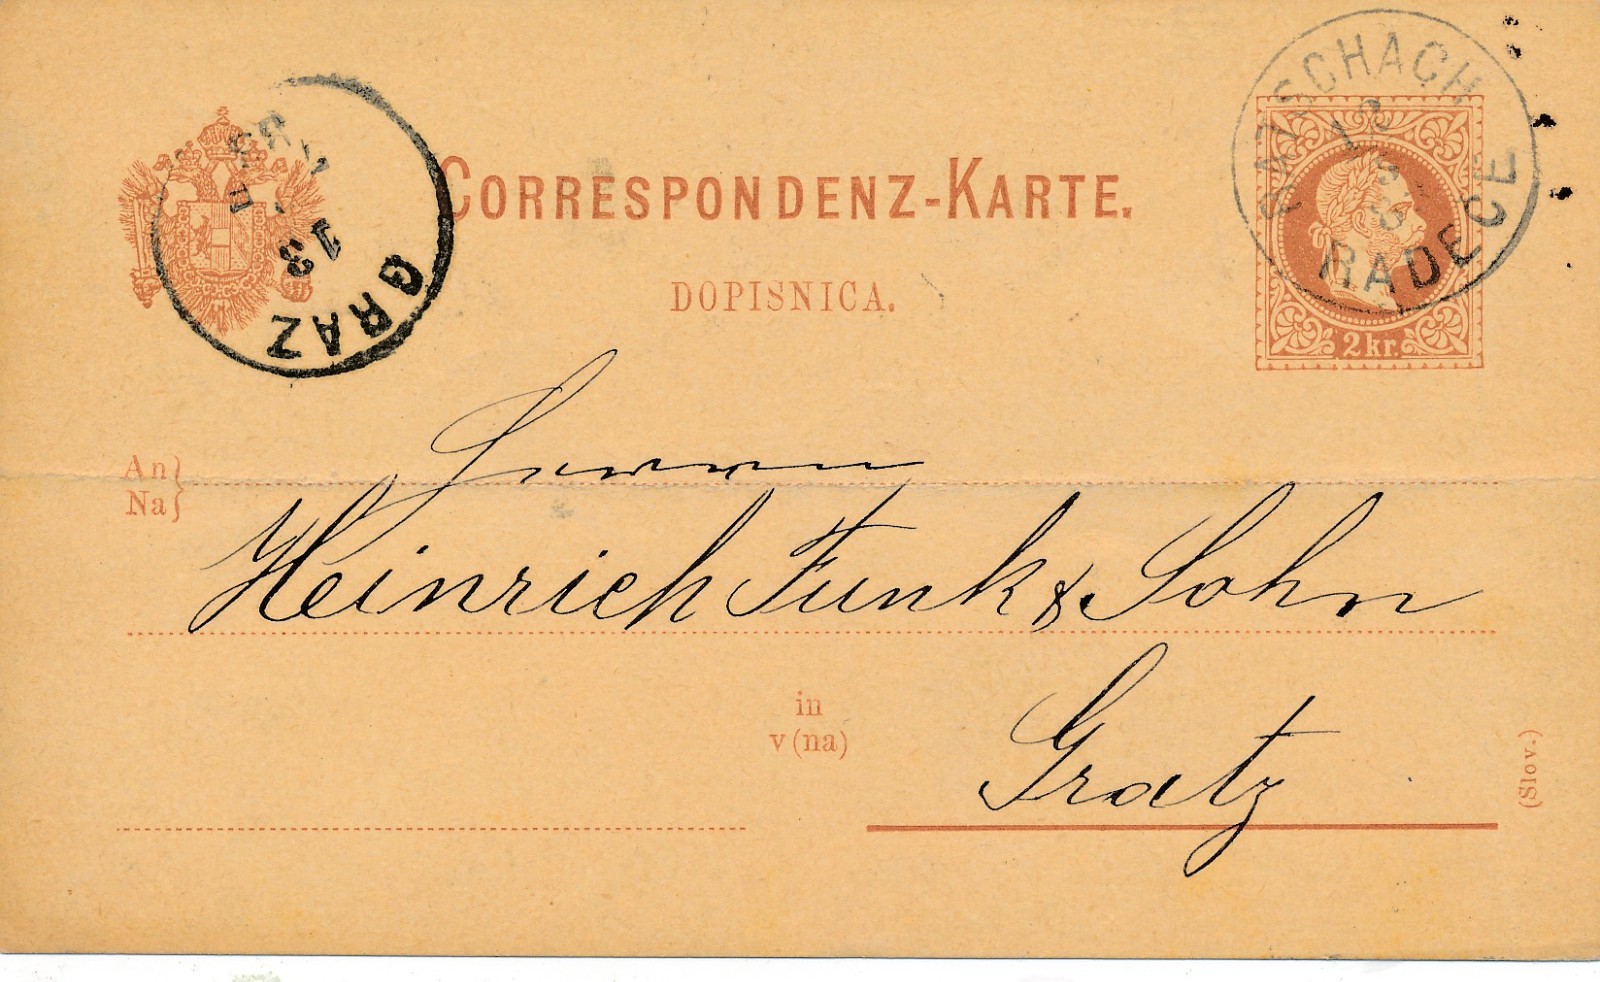 CORRESPONDENZ-KARTE.
DOPISNICA.
GRAZ
13
RATSCHACH
RADECE
2 kr.
An
Na
Herrn
Heinrich Funk & Sohn
in
v (na)
Gratz
(Slov.)